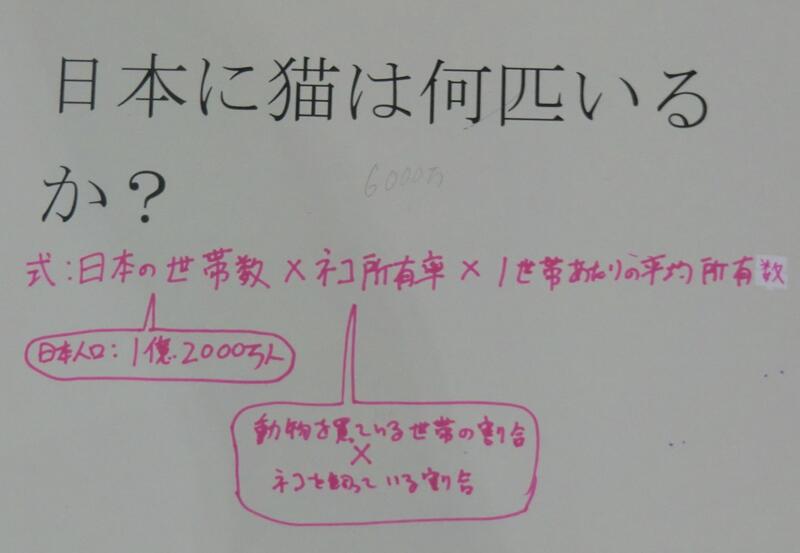 日本に猫は何匹いる
か？
6000万
式:日本の世帯数×ネコ所有率×1世帯あたりの平均所有数
日本人口:1億2000万人
動物を買ている世帯の割合
×
ネコを飼っている割合